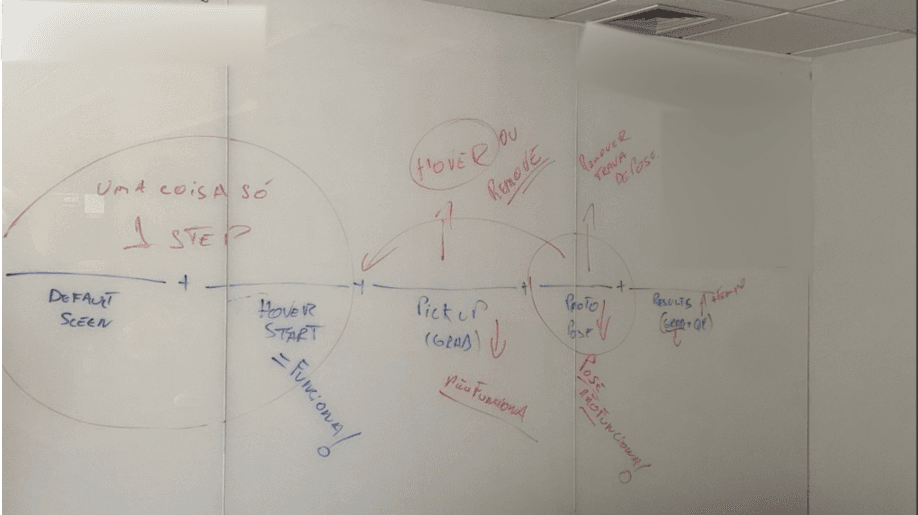 UMA COISA SÓ
1 STEP
HOVER OU
REMOVE
REMOVER
TRAVA
DE POSE
DEFAULT
SCEEN
+
HOVER
START
= FUNCIONA!
+
PICKUP
(GRAB)
NÃO FUNCIONA
+
PROTO
POSE
POSE
NÃO FUNCIONA!
+
RESULTS
+TEMPO